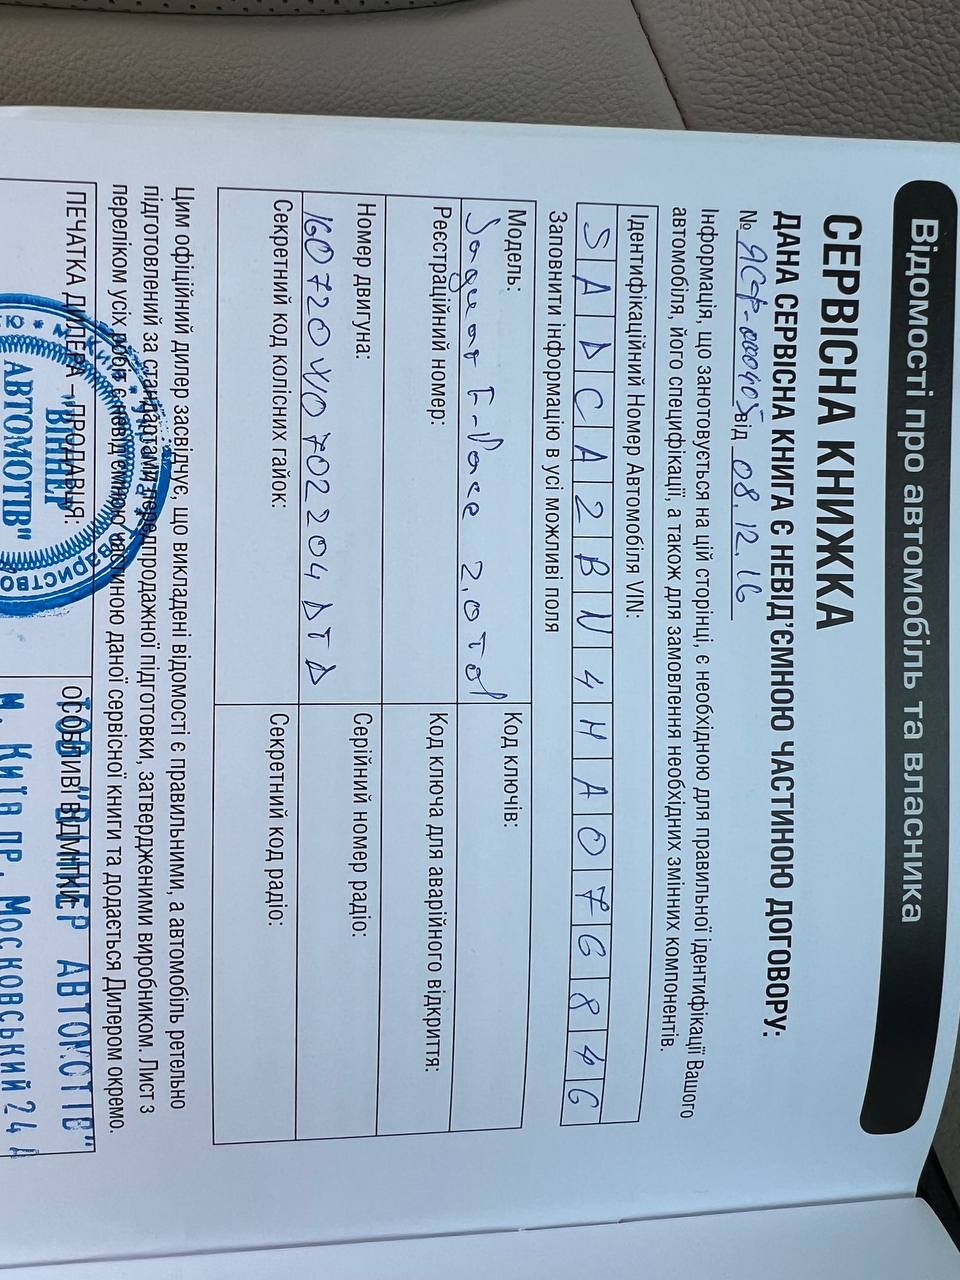 Відомості про автомобіль та власника
СЕРВІСНА КНИЖКА
ДАНА СЕРВІСНА КНИГА Є НЕВІД'ЄМНОЮ ЧАСТИНОЮ ДОГОВОРУ:
№ ЯСФ-000405 від 08.12.16
Інформація, що занотовується на цій сторінці, є необхідною для правильної ідентифікації Вашого
автомобіля, його специфікації, а також для замовлення необхідних змінних компонентів.
Ідентифікаційний Номер Автомобіля VIN:
S A D C A 2 B N 4 H A 0 7 6 8 4 6
Заповнити інформацію в усі можливі поля
Модель: Код ключів:
Jaguar F-Pace 2,0 Td
Реєстраційний номер: Код ключа для аварійного відкриття:
Номер двигуна: Серійний номер радіо:
160720 204DTD
Секретний код колісних гайок: Секретний код радіо:
Цим офіційний дилер засвідчує, що викладені відомості є правильними, а автомобіль ретельно
підготовлений за стандартами передпродажної підготовки, затвердженими виробником. Лист з
переліком усіх робіт є невід'ємною частиною даної сервісної книги та додається Дилером окремо.
ПЕЧАТКА ДИЛЕРА – ПРОДАВЦЯ: ОСОБЛИВІ ВІДМІТКИ:
"ВІННЕР
АВТОМОТІВ"
ТОВ "ВІННЕР АВТОМОТІВ"
м. Київ пр. Московський 24А